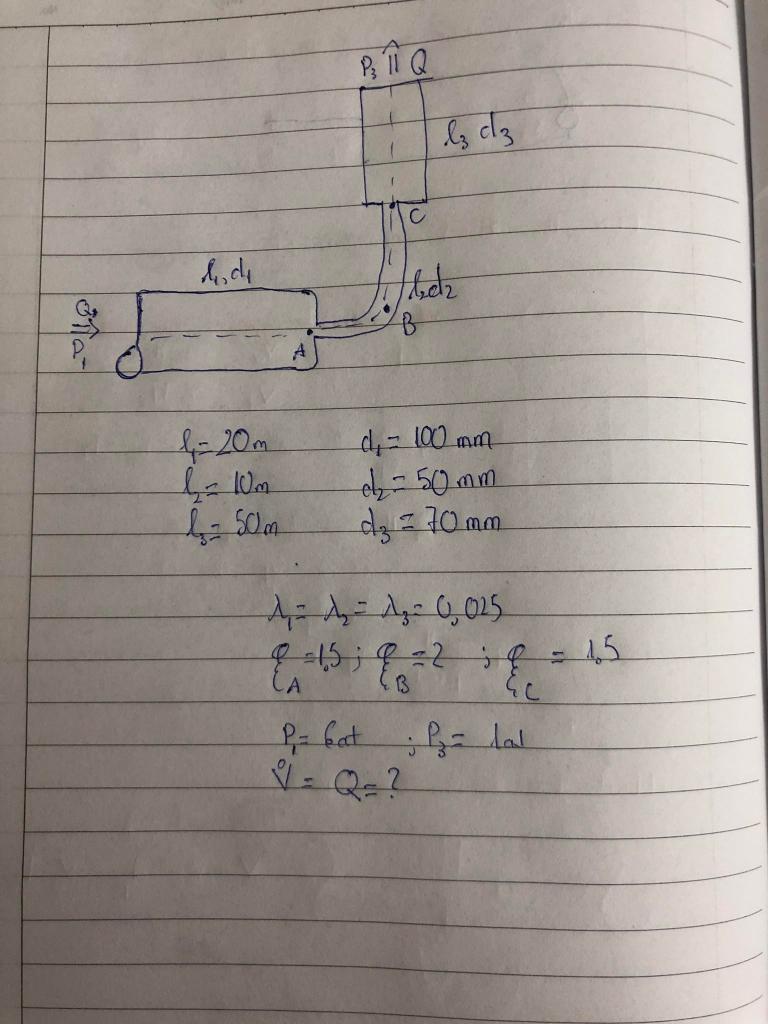 P₃ Q
l₃ d₃
C
l₁, d₁
l₂d₂
Q
P₁
A
B
l₁= 20m d₁= 100 mm
l₂= 10m d₂= 50 mm
l₃= 50m d₃= 70 mm
λ₁= λ₂= λ₃= 0,025
ξ_A =1,5 ; ξ_B =2 ; ξ_C = 1.5
P₁= 6at ; P₃= 1at
V̊ = Q=?